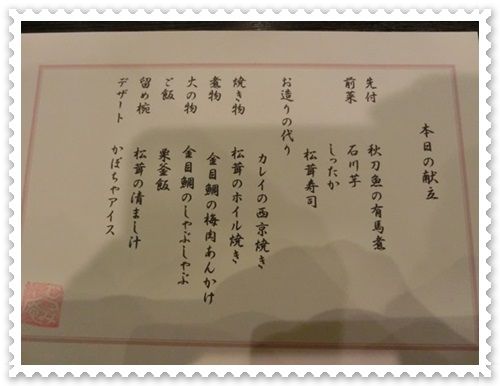 本日の献立
先付　秋刀魚の有馬煮
前菜　石川芋
しったか
松茸寿司
お造りの代り
カレイの西京焼き
焼き物　松茸のホイル焼き
煮物　金目鯛の梅肉あんかけ
火の物　金目鯛のしゃぶしゃぶ
ご飯　栗釜飯
留め椀　松茸の清まし汁
デザート　かぼちゃアイス